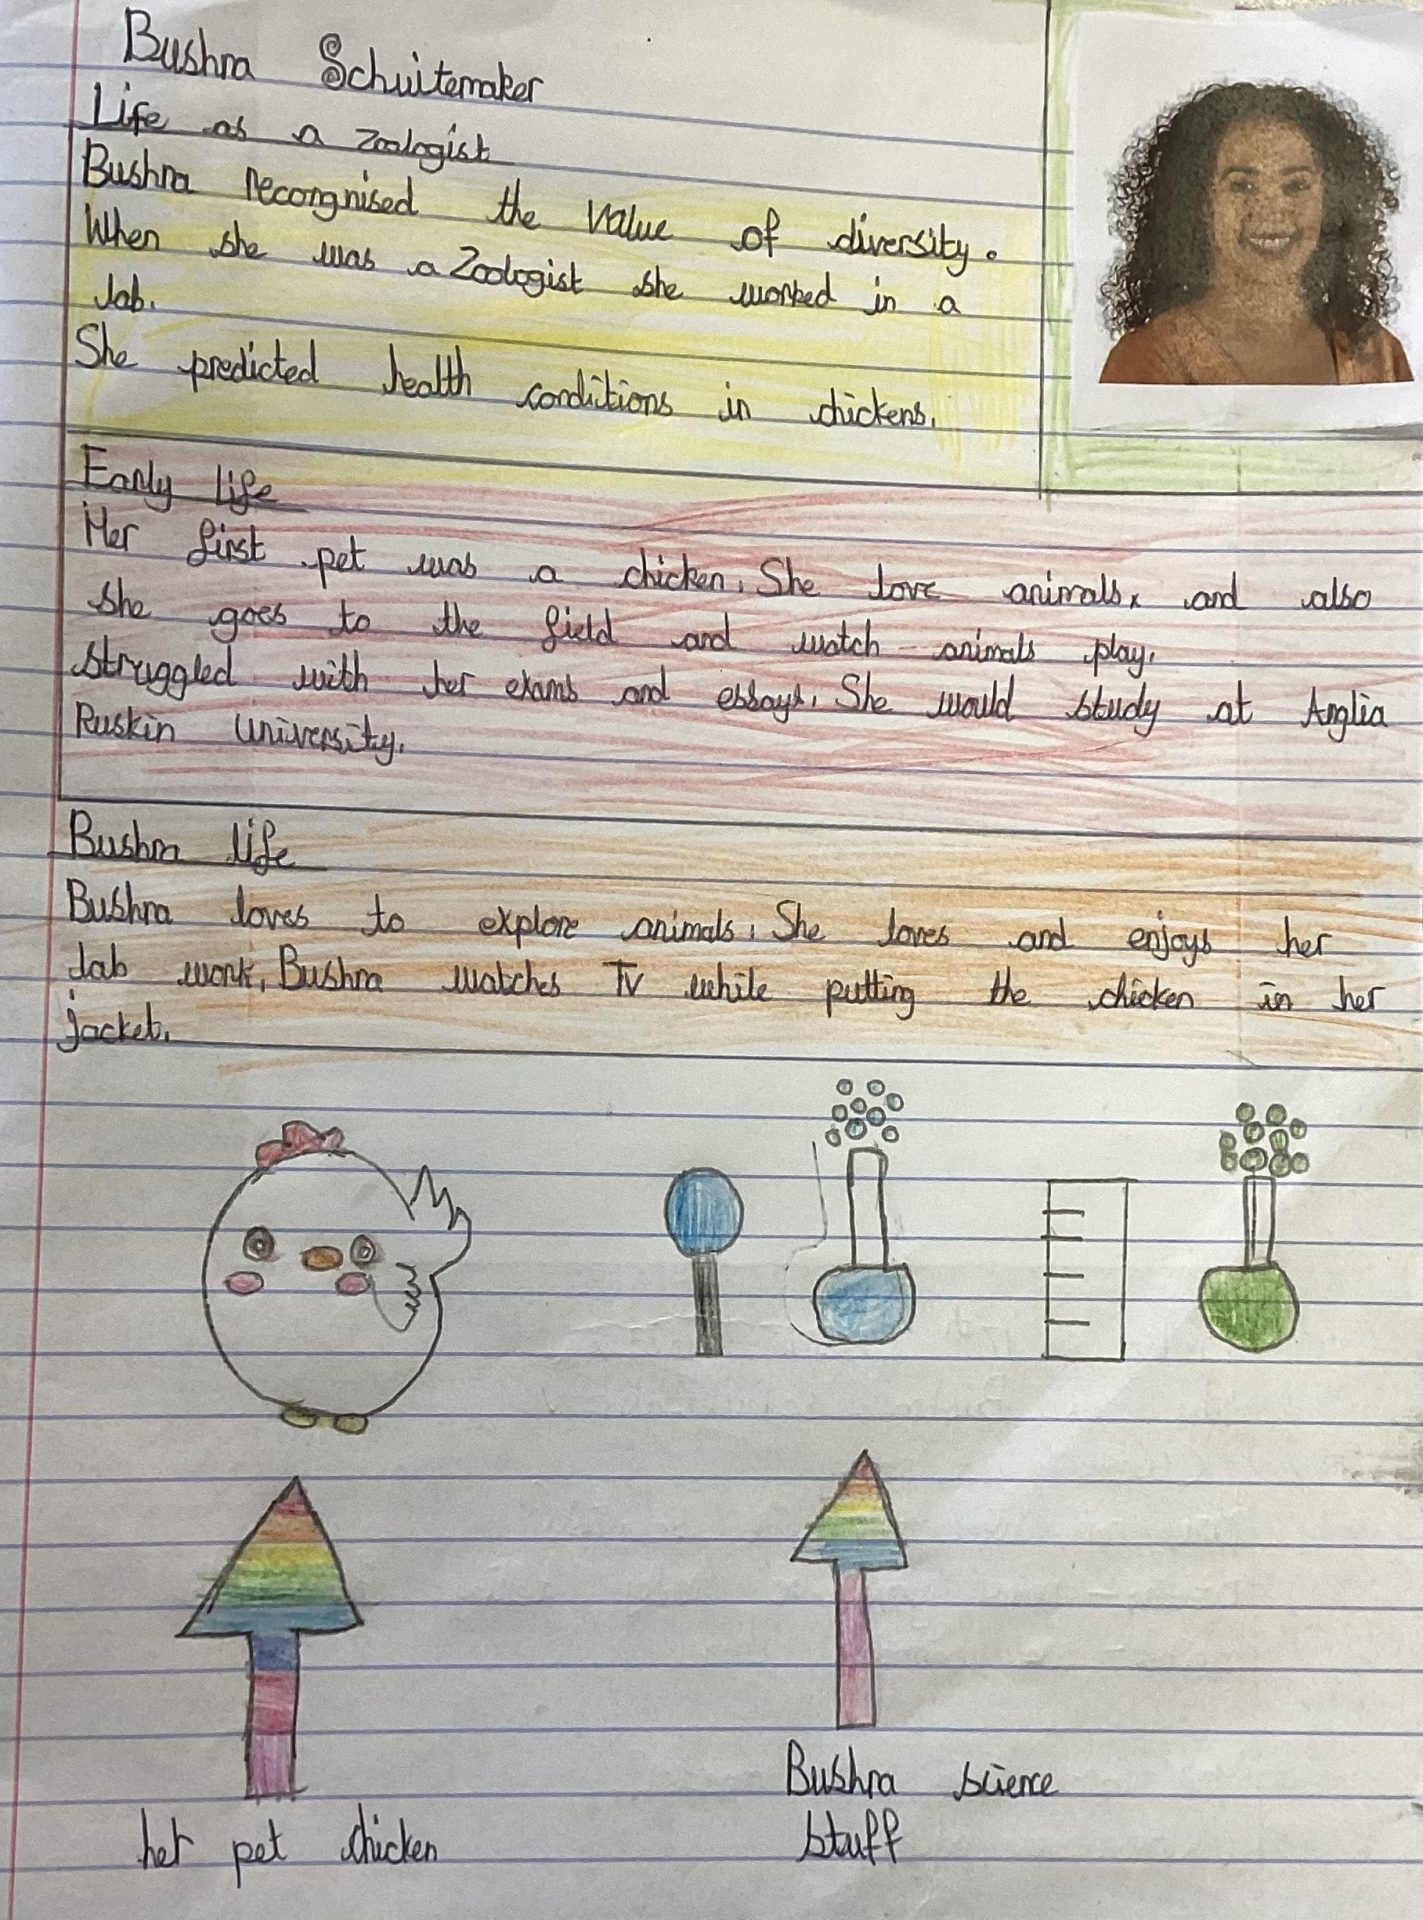 Bushra Schuitemaker
Life as a Zoologist
Bushra recorgnised the value of diversity.
When she was a Zoologist she worked in a
lab.
She predicted health conditions in chickens.
Early life
Her first pet was a chicken. She love animals, and also
she goes to the field and watch animals play.
struggled with her exams and essays. She would study at Anglia
Ruskin University.
Bushra life
Bushra loves to explore animals. She loves and enjoys her
lab work. Bushra watches TV while putting the chicken in her
jacket.
her pet chicken
Bushra science
stuff